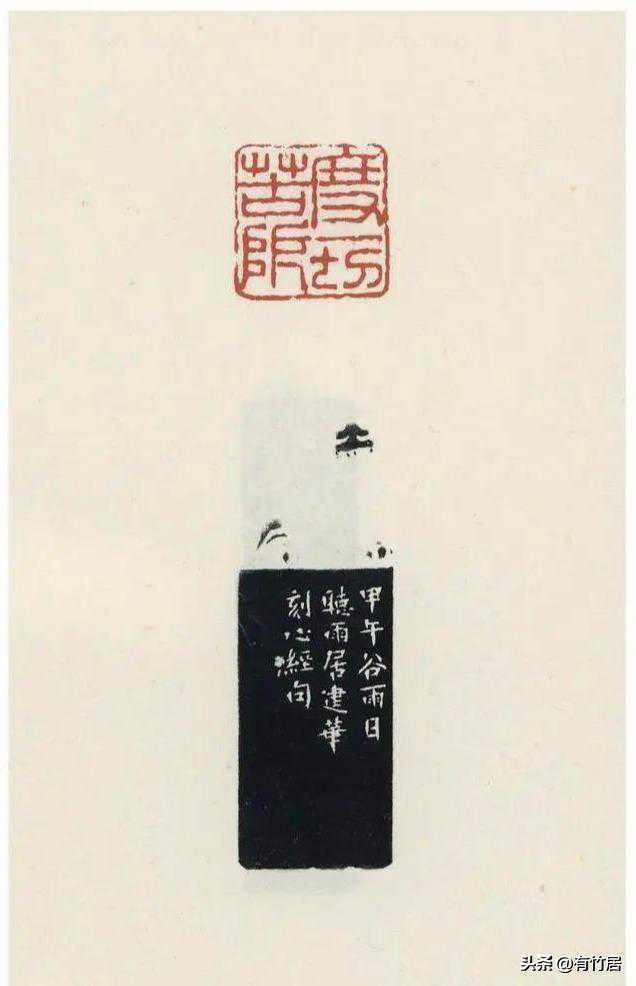 度一切
苦厄
甲午谷雨日
聽雨居建華
刻心經句
头条 @有竹居